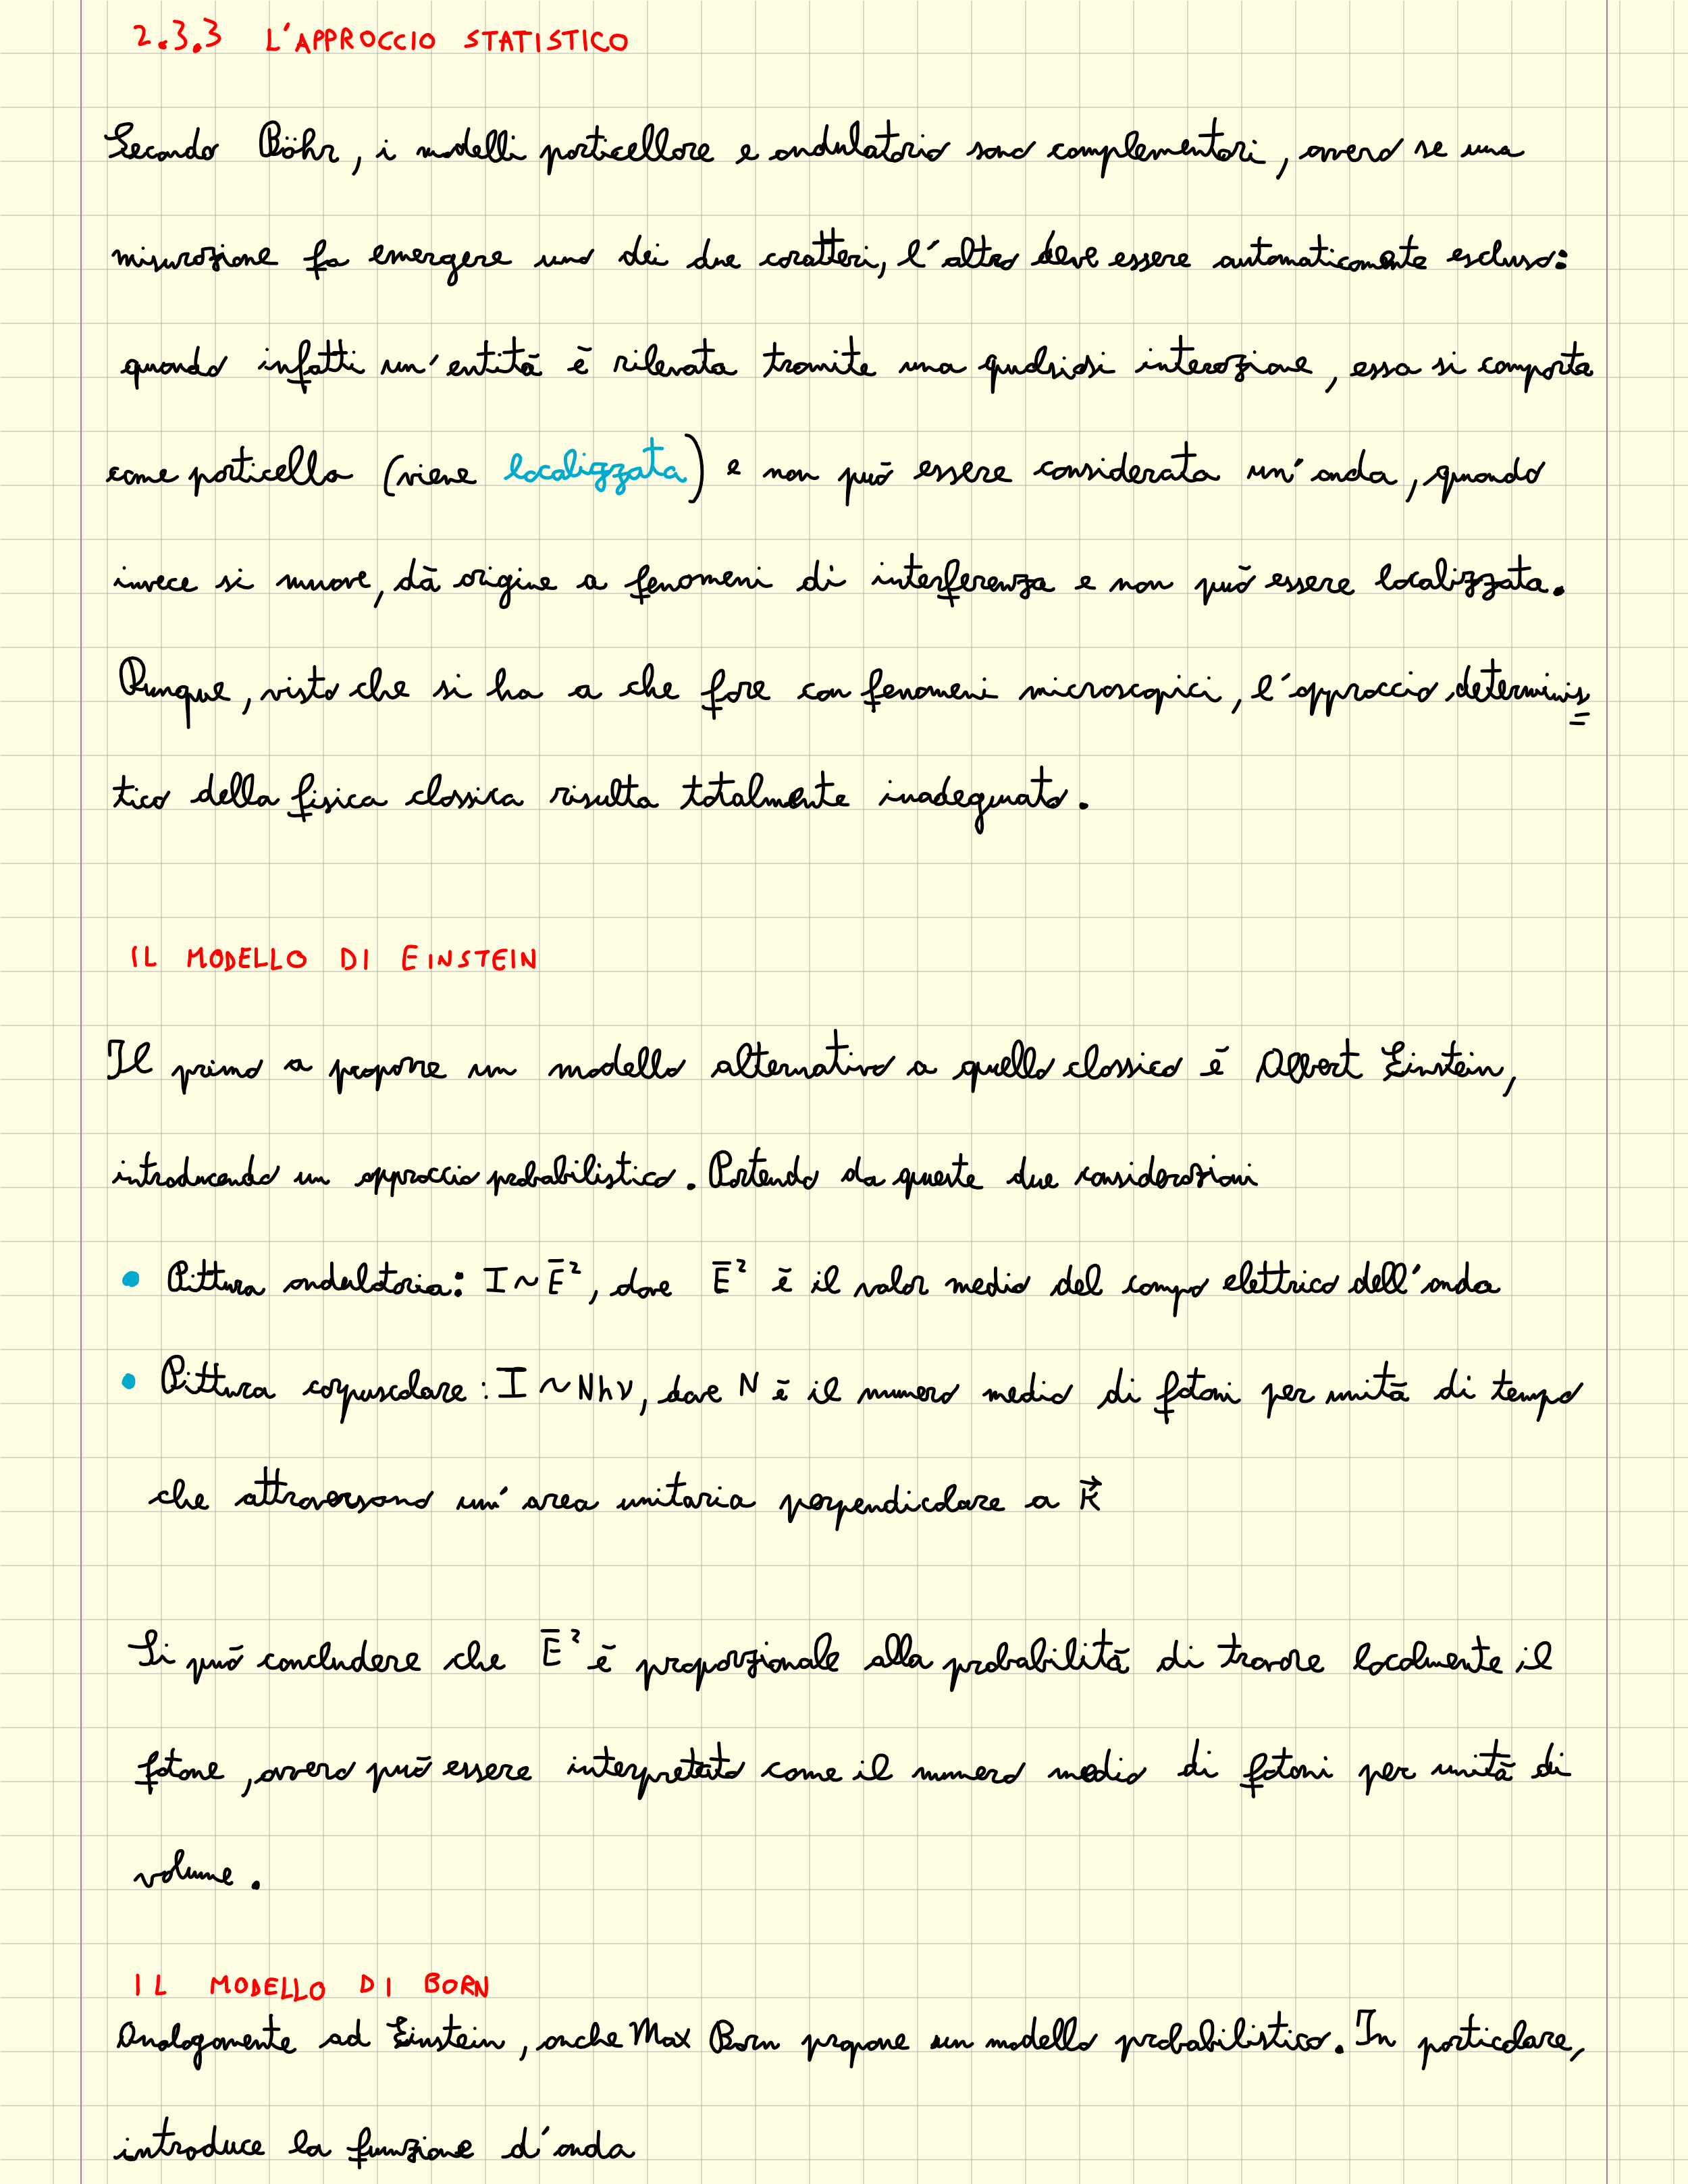 2.3.3 L'APPROCCIO STATISTICO
Secondo Böhr, i modelli particellare e ondulatorio sono complementari, ovvero se una
misurazione fa emergere uno dei due caratteri, l'altro deve essere automaticamente escluso:
quando infatti un'entità è rilevata tramite una qualsiasi interazione, essa si comporta
come particella (viene localizzata) e non può essere considerata un'onda, quando
invece si muove, dà origine a fenomeni di interferenza e non può essere localizzata.
Dunque, visto che si ha a che fare con fenomeni microscopici, l'approccio determinis
tico della fisica classica risulta totalmente inadeguato.
IL MODELLO DI EINSTEIN
Il primo a proporre un modello alternativo a quello classico è Albert Einstein,
introducendo un approccio probabilistico. Partendo da queste due considerazioni
• Pittura ondulatoria: I ~ Ē², dove Ē² è il valor medio del campo elettrico dell'onda
• Pittura corpuscolare: I ~ Nhν, dove N è il numero medio di fotoni per unità di tempo
che attraversano un'area unitaria perpendicolare a K⃗
Si può concludere che Ē² è proporzionale alla probabilità di trovare localmente il
fotone, ovvero può essere interpretato come il numero medio di fotoni per unità di
volume.
IL MODELLO DI BORN
Analogamente ad Einstein, anche Max Born propone un modello probabilistico. In particolare,
introduce la funzione d'onda